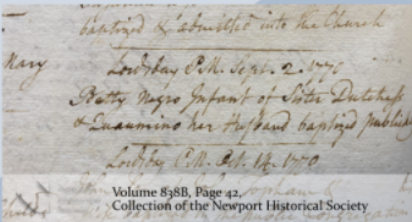 baptized & admitted into the Church
Mary
Lordsday P.M. Sept. 2. 1770
Betty Negro Infant of Sister Dutchess
& Quaumino her Husband baptized publickly
Lordsday P.M. Oct. 14. 1770
Volume 838B, Page 42,
Collection of the Newport Historical Society